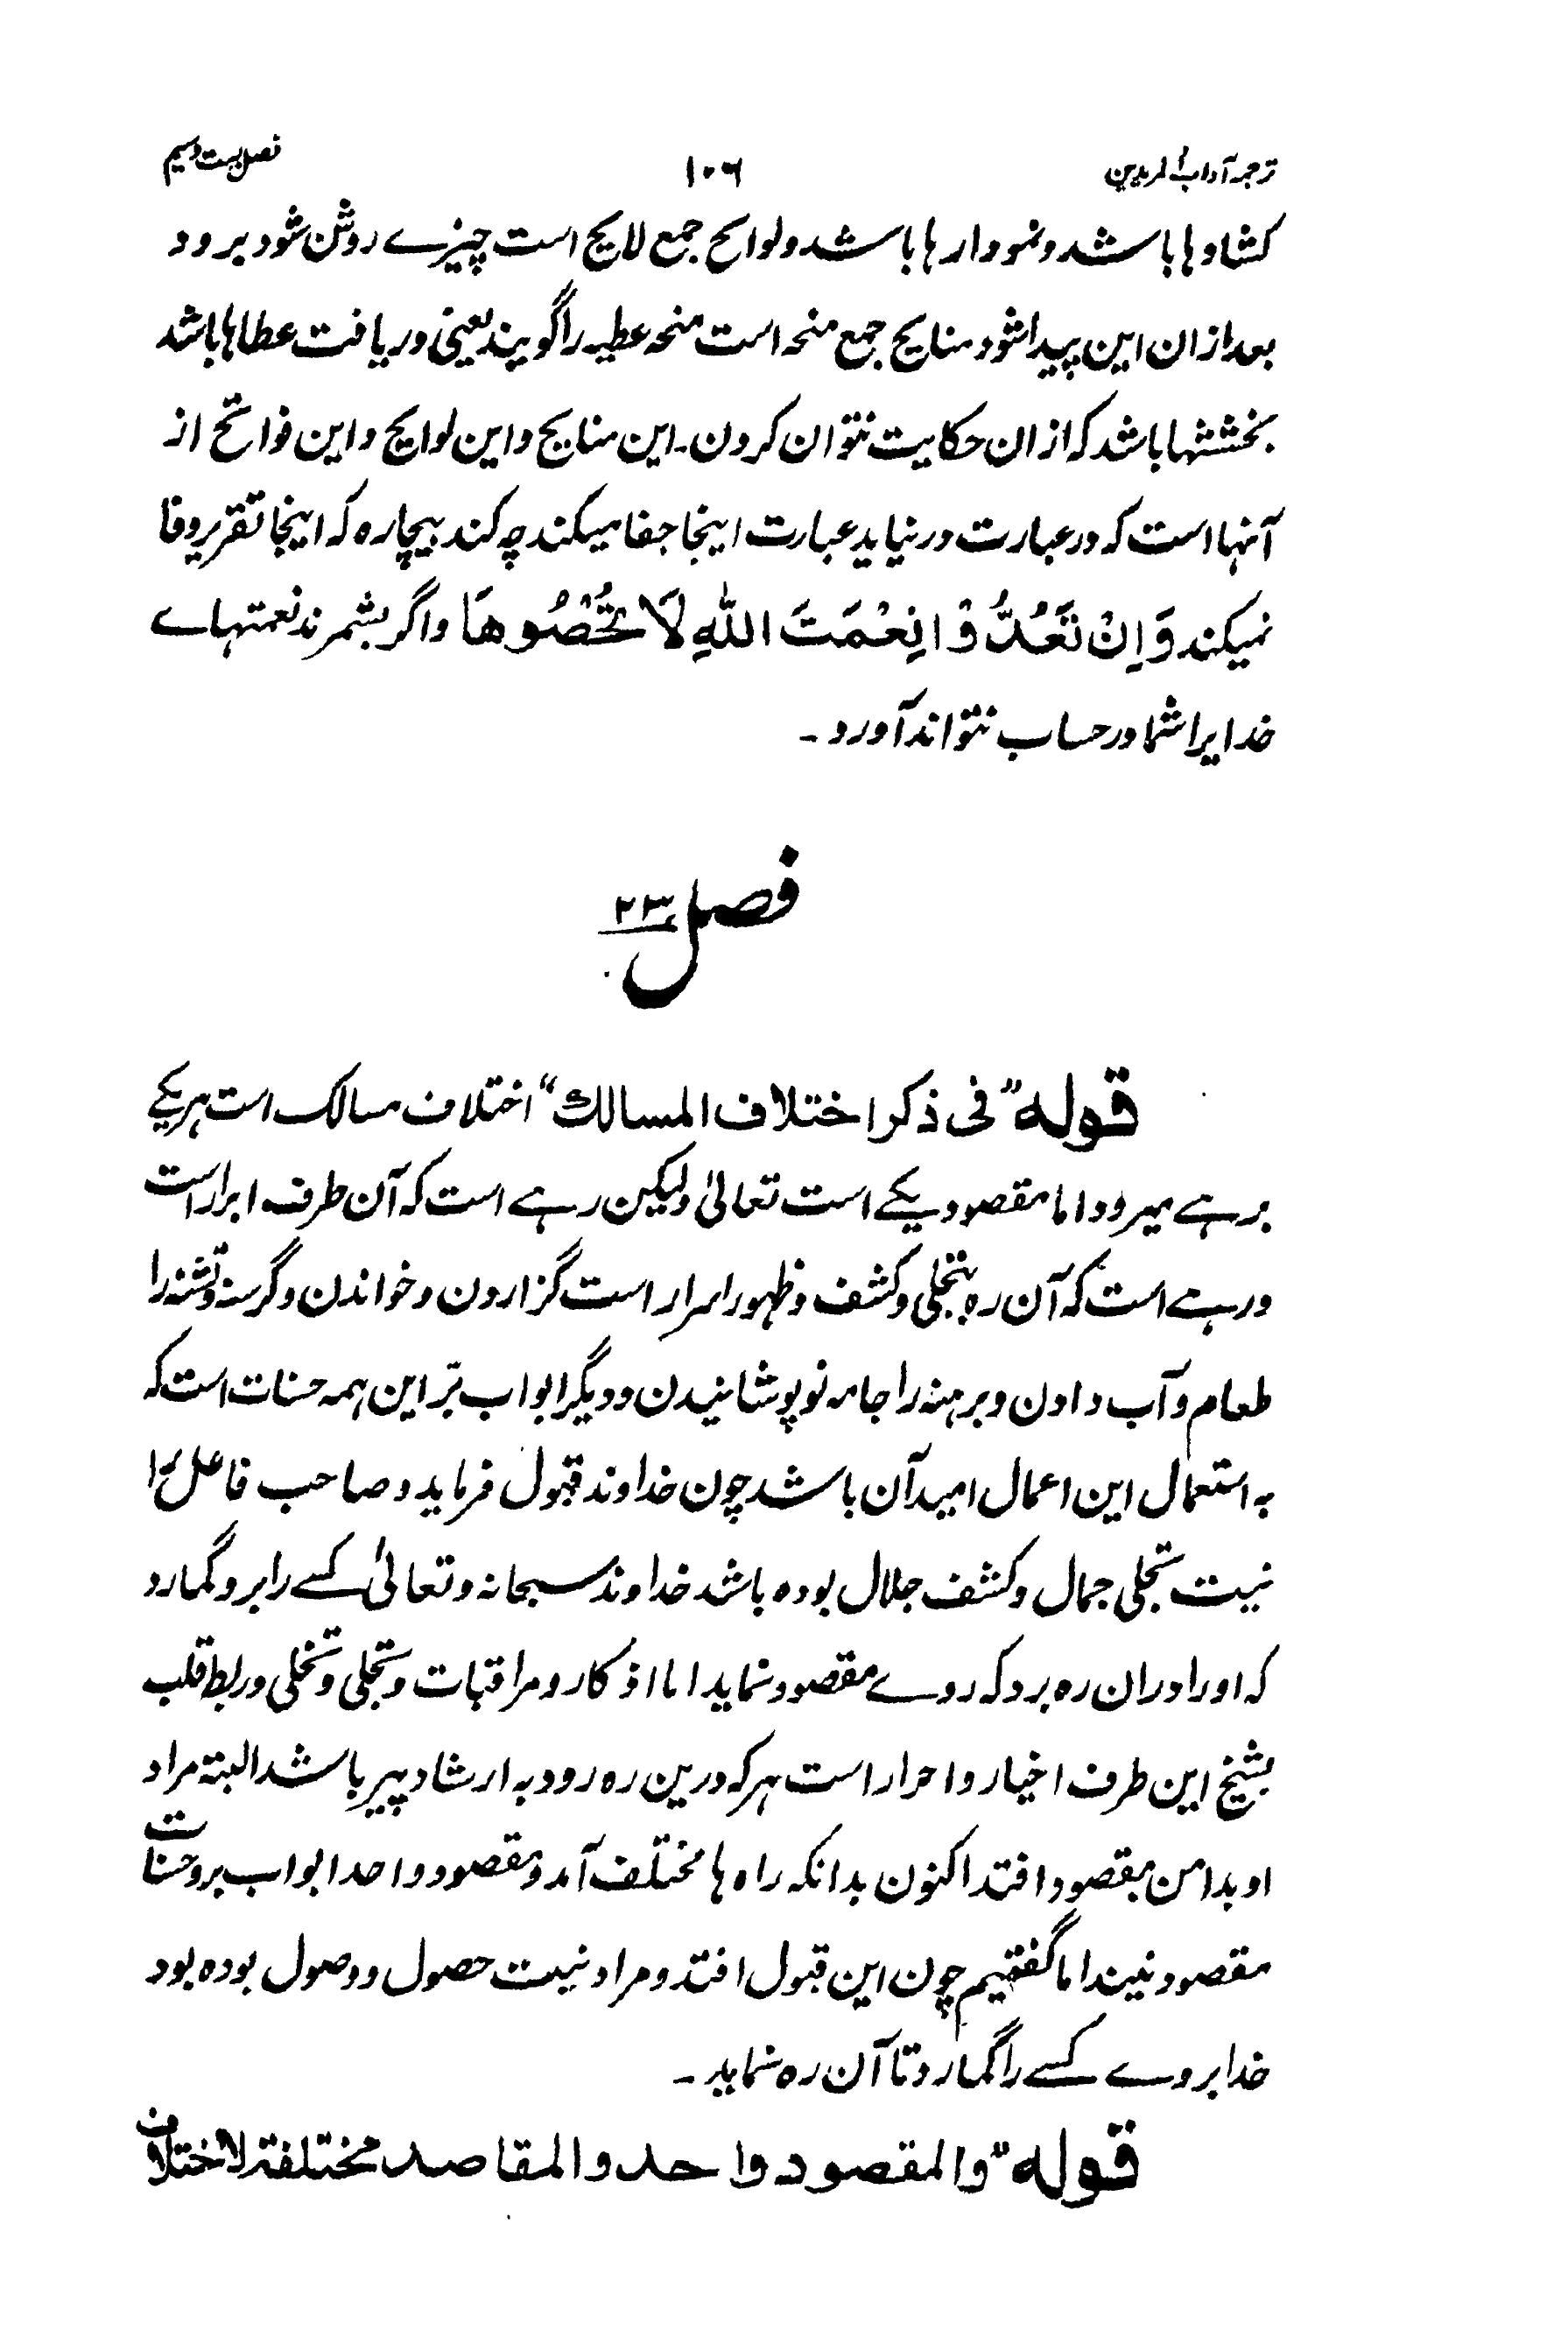 ترجمہ آداب المریدین ۱۰۶ فصل بست و سیم
کشادہا باشد و نمودارہا باشد و لوایح جمع لایح است چیزے روشن شود برود
بعد ازان این پیدا شود منایح جمع منحہ است منحہ عطیہ را گویند یعنی دریافت عطاہا باشد
بخششہا باشد کہ ازان حکایت نتوان کردن۔ این منایح و این لوایح و این فواتح از
آنہا است کہ در عبارت در نیاید عبارت اینجا جفا میکند چہ کند بیچارہ کہ اینجا تقریر وفا
نمیکند وَاِنْ تَعُدُّوْا نِعْمَتَ اللّٰهِ لَا تُحْصُوهَا و اگر بشمرند نعمتہاے
خدایرا شما در حساب نتواند آورد۔
فصل ۲۳
قوله "فی ذکر اختلاف المسالك" اختلاف مسالک است ہر یکے
برہے میرود اما مقصود یکے است تعالیٰ ولیکن رہے است کہ آن طرف ابرار است
و رہے است کہ آن رہ بتجلی و کشف و ظہور اسرار است گزاردن و خواندن و گرسنہ و تشنہ را
طعام و آب دادن و برہنہ را جامہ نو پوشانیدن و دیگر ابواب برّ این ہمہ حسنات است کہ
بہ استعمال این اعمال امید آن باشد چون خداوند قبول فرماید و صاحب فاعل را
نیت تجلی جمال و کشف جلال بودہ باشد خداوند سبحانہ و تعالیٰ کسے را برو گمارد
کہ او را دران رہ برد کہ روے مقصود نماید اما اذکار و مراقبات و تجلی و تخلی و ربط قلب
بشیخ این طرف اخیار و احرار است ہر کہ درین رہ رود بہ ارشاد پیر باشد البتہ مراد
او بدامن مقصود افتد اکنون بدانکہ راہ ہا مختلف آمد و مقصود واحد ابواب بر و حسنات
مقصود نیند اما گفتیم چون این قبول افتد و مراد نیت حصول و وصول بودہ بود
خدا بروے کسے را گمارد تا آن رہ نماید۔
قوله "والمقصود واحد والمقاصد مختلفة لاختلاف